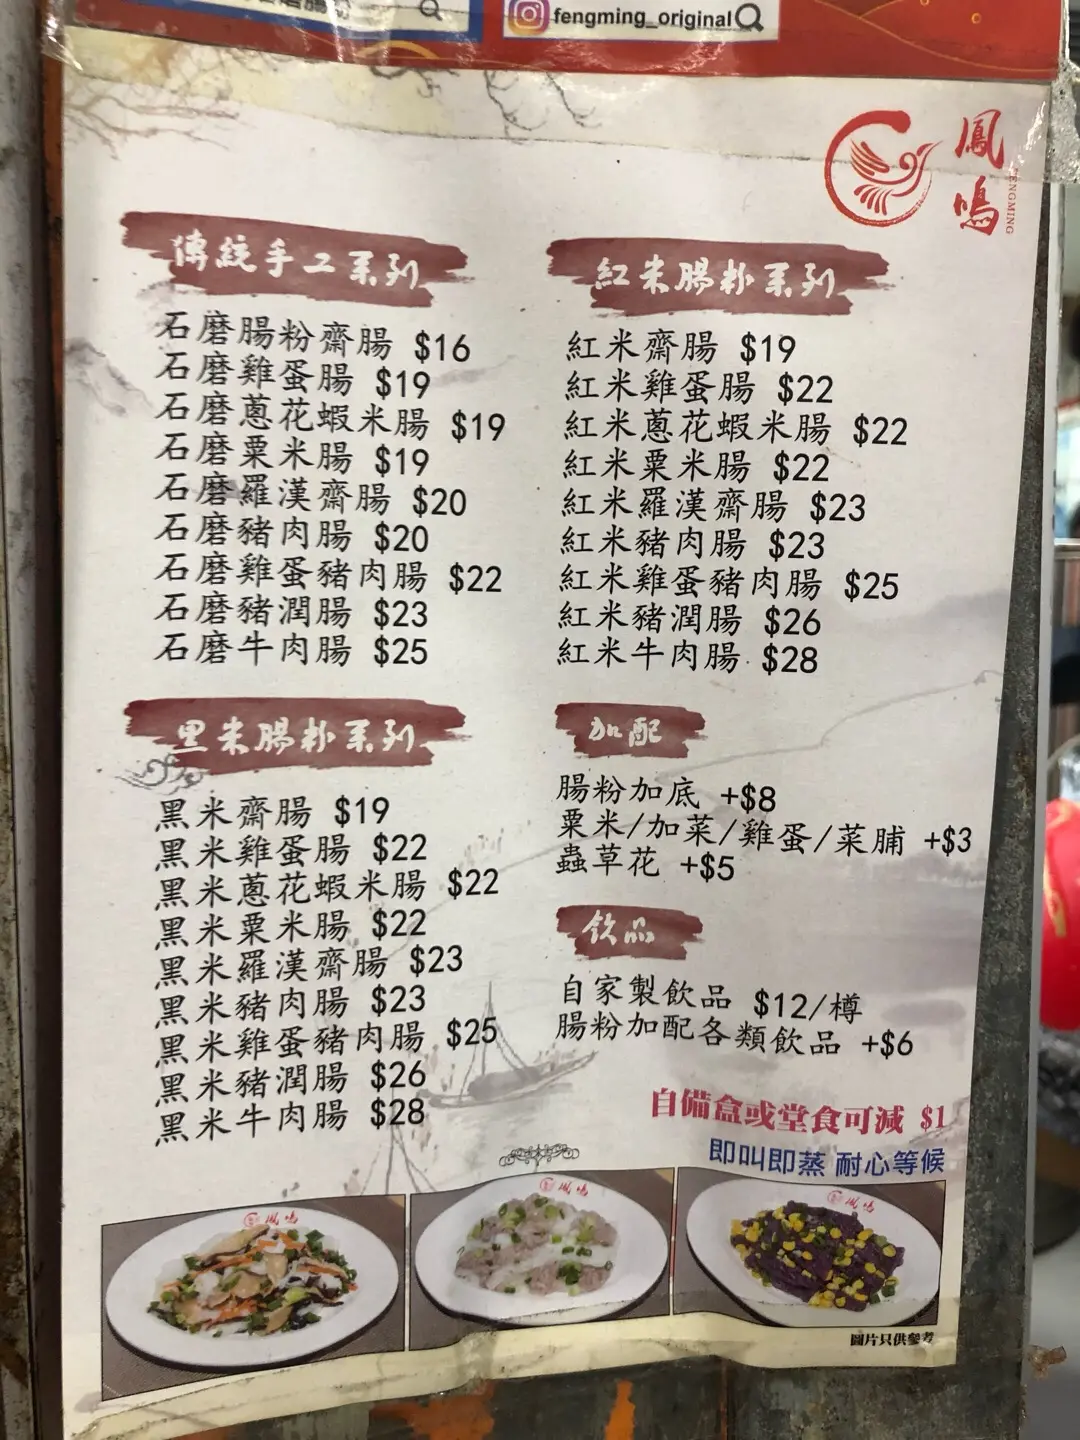 fengming_original
鳳鳴
FENGMING
傳統手工系列
石磨腸粉齋腸 $16
石磨雞蛋腸 $19
石磨蔥花蝦米腸 $19
石磨粟米腸 $19
石磨羅漢齋腸 $20
石磨豬肉腸 $20
石磨雞蛋豬肉腸 $22
石磨豬潤腸 $23
石磨牛肉腸 $25
紅米腸粉系列
紅米齋腸 $19
紅米雞蛋腸 $22
紅米蔥花蝦米腸 $22
紅米粟米腸 $22
紅米羅漢齋腸 $23
紅米豬肉腸 $23
紅米雞蛋豬肉腸 $25
紅米豬潤腸 $26
紅米牛肉腸 $28
黑米腸粉系列
黑米齋腸 $19
黑米雞蛋腸 $22
黑米蔥花蝦米腸 $22
黑米粟米腸 $22
黑米羅漢齋腸 $23
黑米豬肉腸 $23
黑米雞蛋豬肉腸 $25
黑米豬潤腸 $26
黑米牛肉腸 $28
加配
腸粉加底 +$8
粟米/加菜/雞蛋/菜脯 +$3
蟲草花 +$5
飲品
自家製飲品 $12/樽
腸粉加配各類飲品 +$6
自備盒或堂食可減 $1
即叫即蒸 耐心等候
鳳鳴
鳳鳴
鳳鳴
圖片只供參考